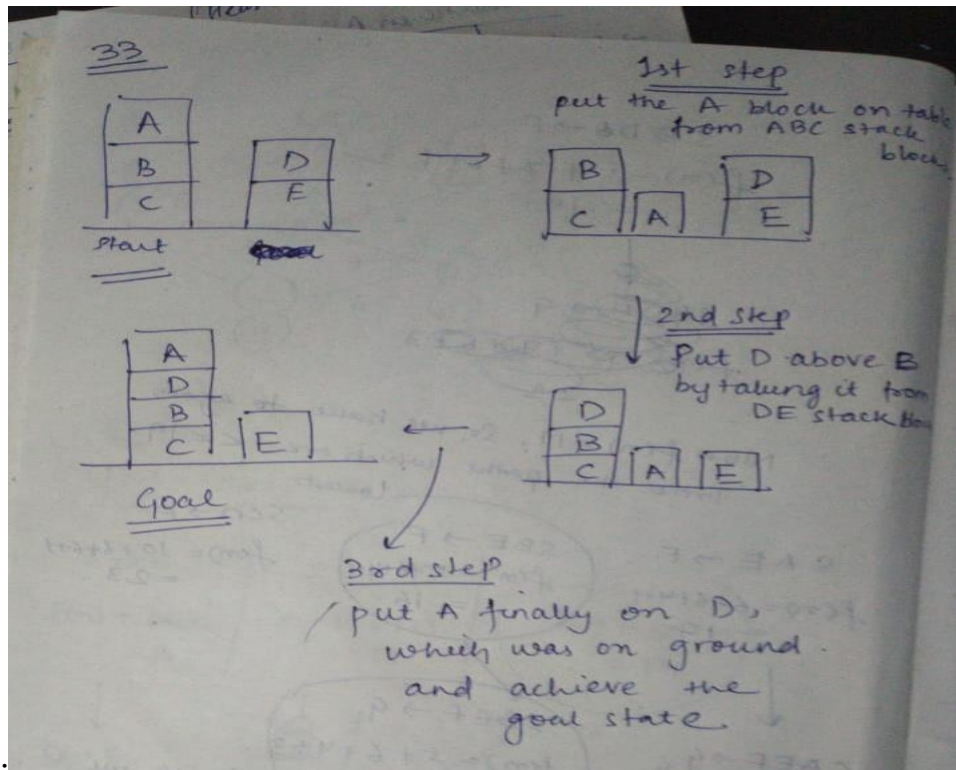 33
1st step
put the A block on table
from ABC stack
block.
A
B
C
D
E
Start
B
C
A
D
E
2nd step
Put D above B
by taking it from
DE stack
D
B
C
A
E
A
D
B
C
E
Goal
3rd step
put A finally on D,
which was on ground.
and achieve the
goal state.